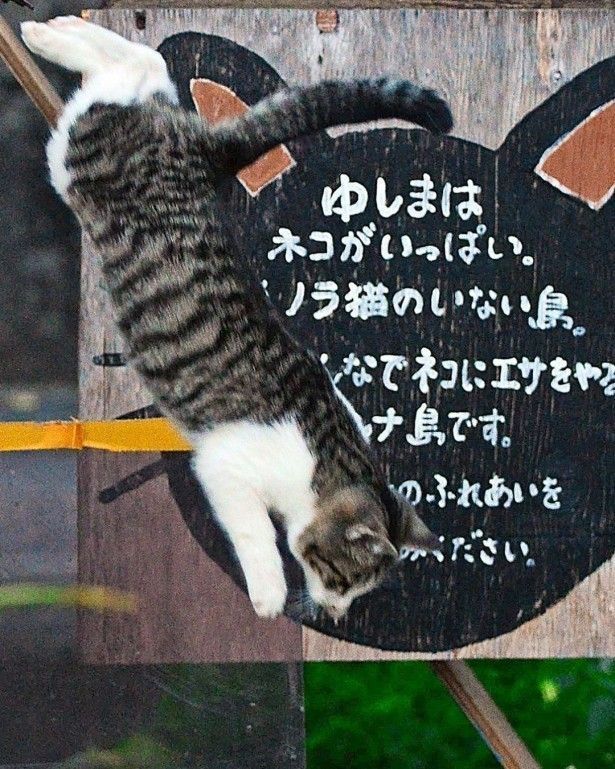 ゆしまは
ネコがいっぱい。
ノラ猫のいない島。
なでネコにエサをやる
ナ島です。
のふれあいを
ください。